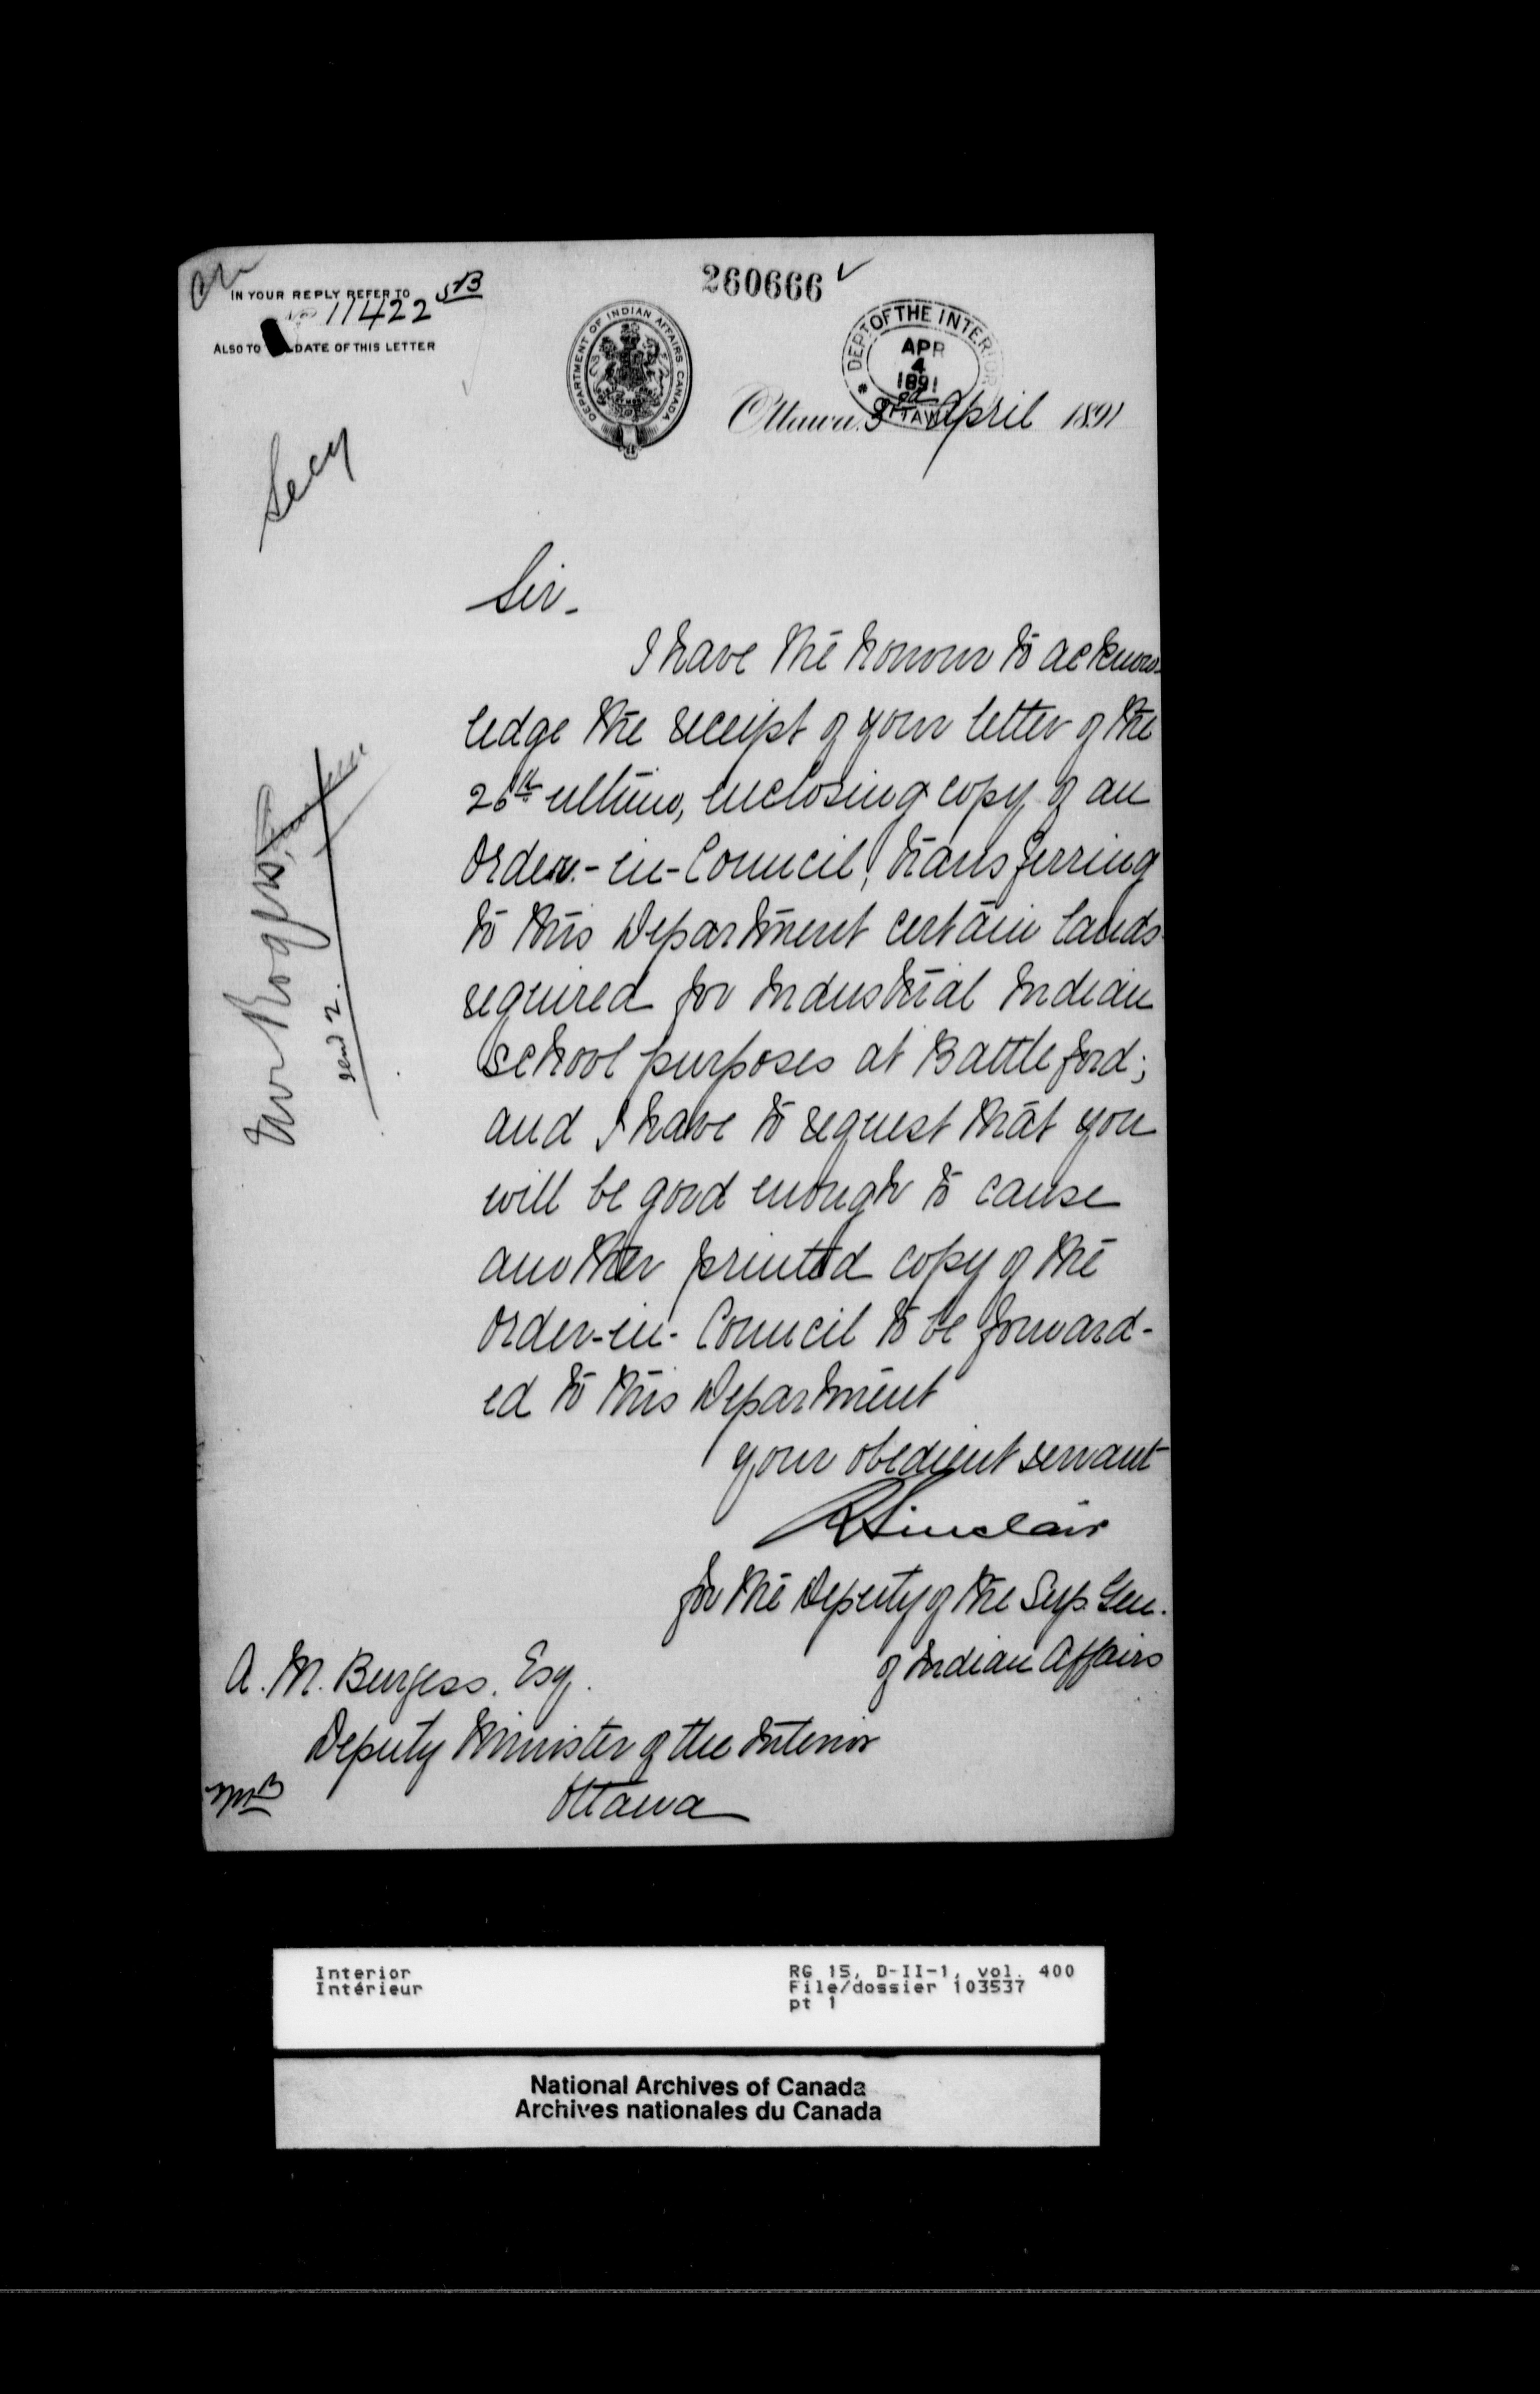 260666
IN YOUR REPLY REFER TO
No 11422
ALSO TO DATE OF THIS LETTER
DEPARTMENT OF INDIAN AFFAIRS CANADA
DEPT OF THE INTERIOR
APR
4
1891
OTTAWA
Ottawa, 3rd April 1891
Secy
Sir -
I have the honour to acknow-
ledge the receipt of your letter of the
26th ultimo, enclosing copy of an
Order-in-Council, transferring
to this Department certain lands
required for Industrial Indian
School purposes at Battleford;
and I have to request that you
will be good enough to cause
another printed copy of the
Order-in-Council to be forward-
ed to this Department
Your obedient servant
R Sinclair
for the Deputy of the Sup. Gen.
of Indian Affairs
A. M. Burgess. Esq.
Deputy Minister of the Interior
Ottawa
Mr Rogers
send 2.
Interior
Intérieur
RG 15, D-II-1, vol. 400
File/dossier 103537
pt 1
National Archives of Canada
Archives nationales du Canada